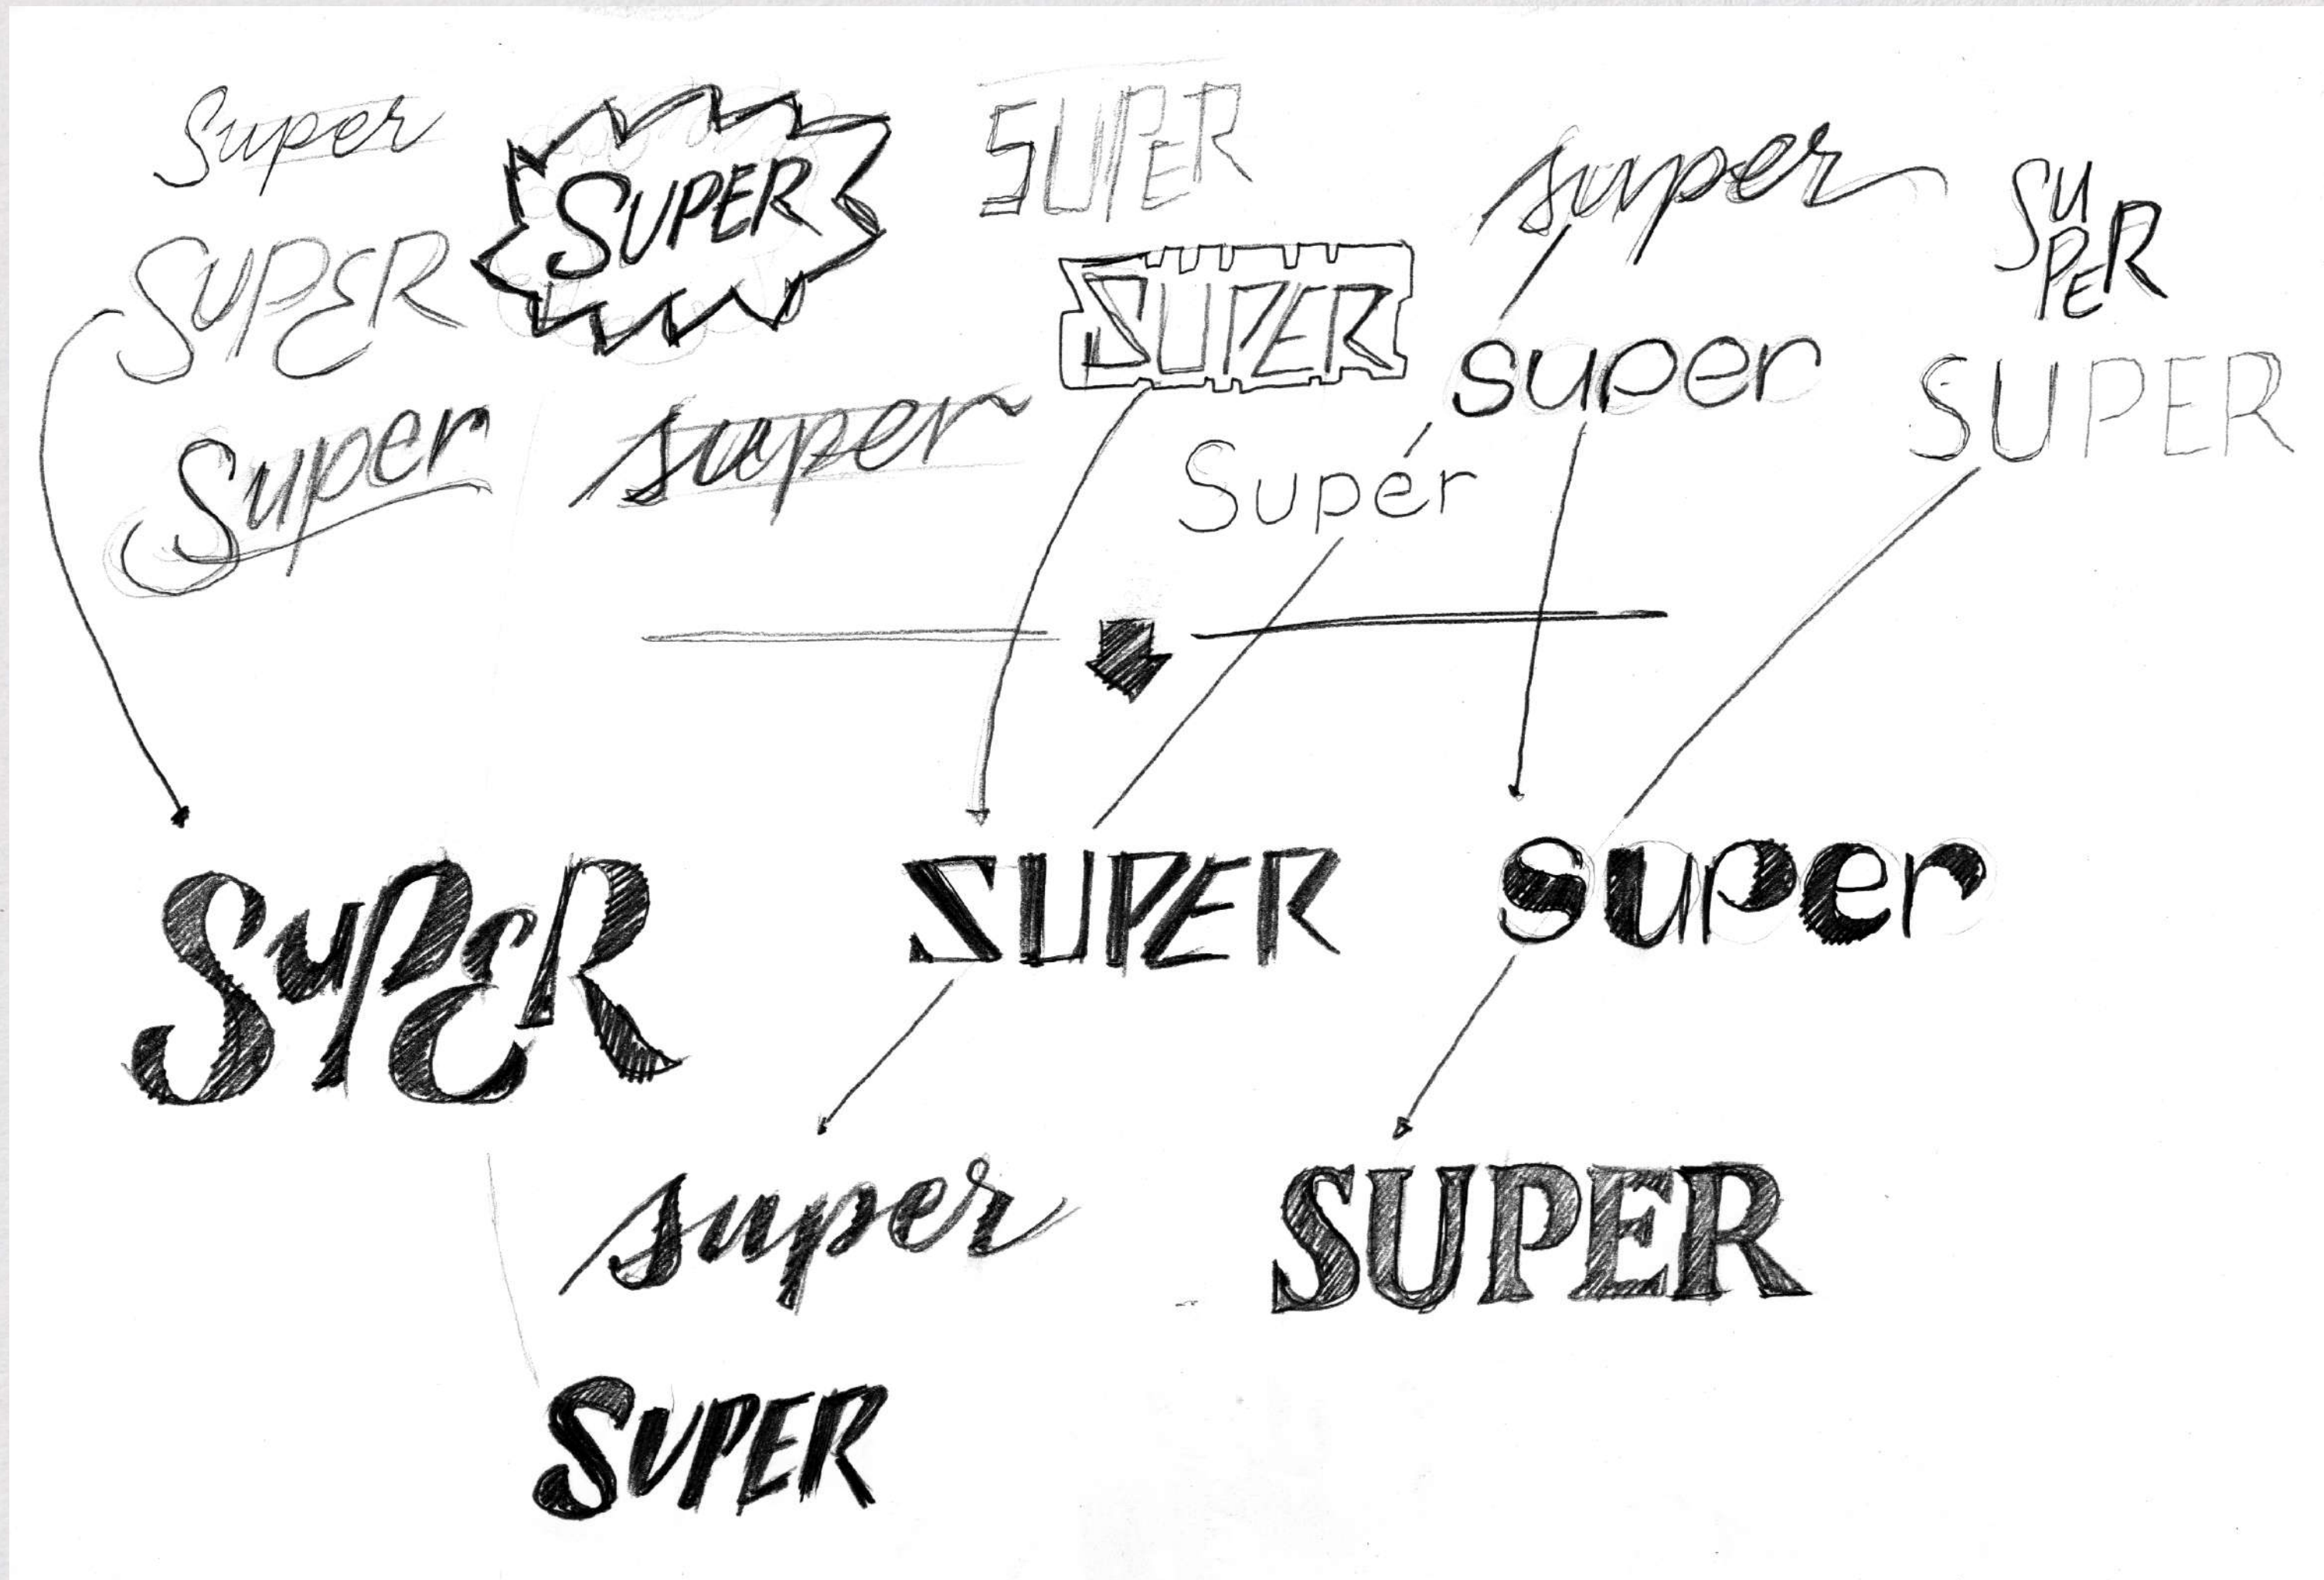 Super
SUPER
SUPER
super
SU
PER
SUPER
SUPER
super
SUPER
Super
super
Supér
SUPER
SUPER
super
super
SUPER
SUPER